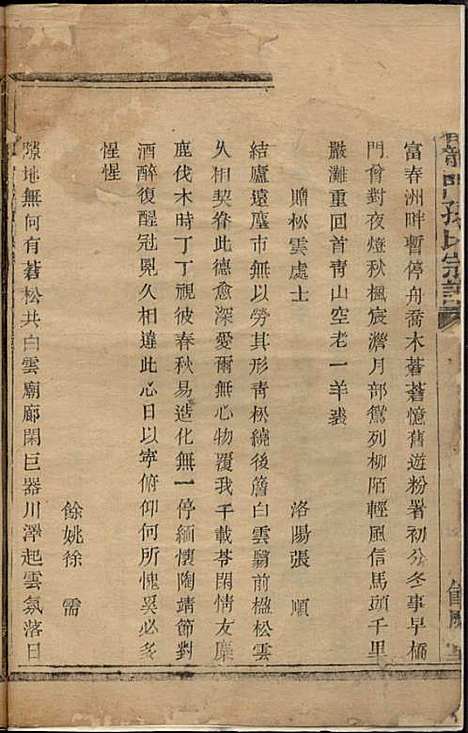 龍門孫氏宗譜
富春洲畔暫停舟喬木蒼蒼憶舊遊粉署初分冬事早橋
門曾對夜燈秋楓宸澹月部鴛列柳陌輕風信馬頭千里
嚴灘重回首青山空老一羊裘
贈松雲處士 洛陽張順
結廬遠塵市無以勞其形青松繞後簷白雲翳前楹松雲
久相契眷此德愈深愛爾無心物覆我千載苓閑情友麋
鹿伐木時丁丁視彼春秋易造化無一停緬懷陶靖節對
酒醉復醒冠冕久相違此心日以寧俯仰何所愧奚必多
惺惺
餘姚徐需
隙地無何有蒼松共白雲廟廊閑巨器川澤起雲氛落日